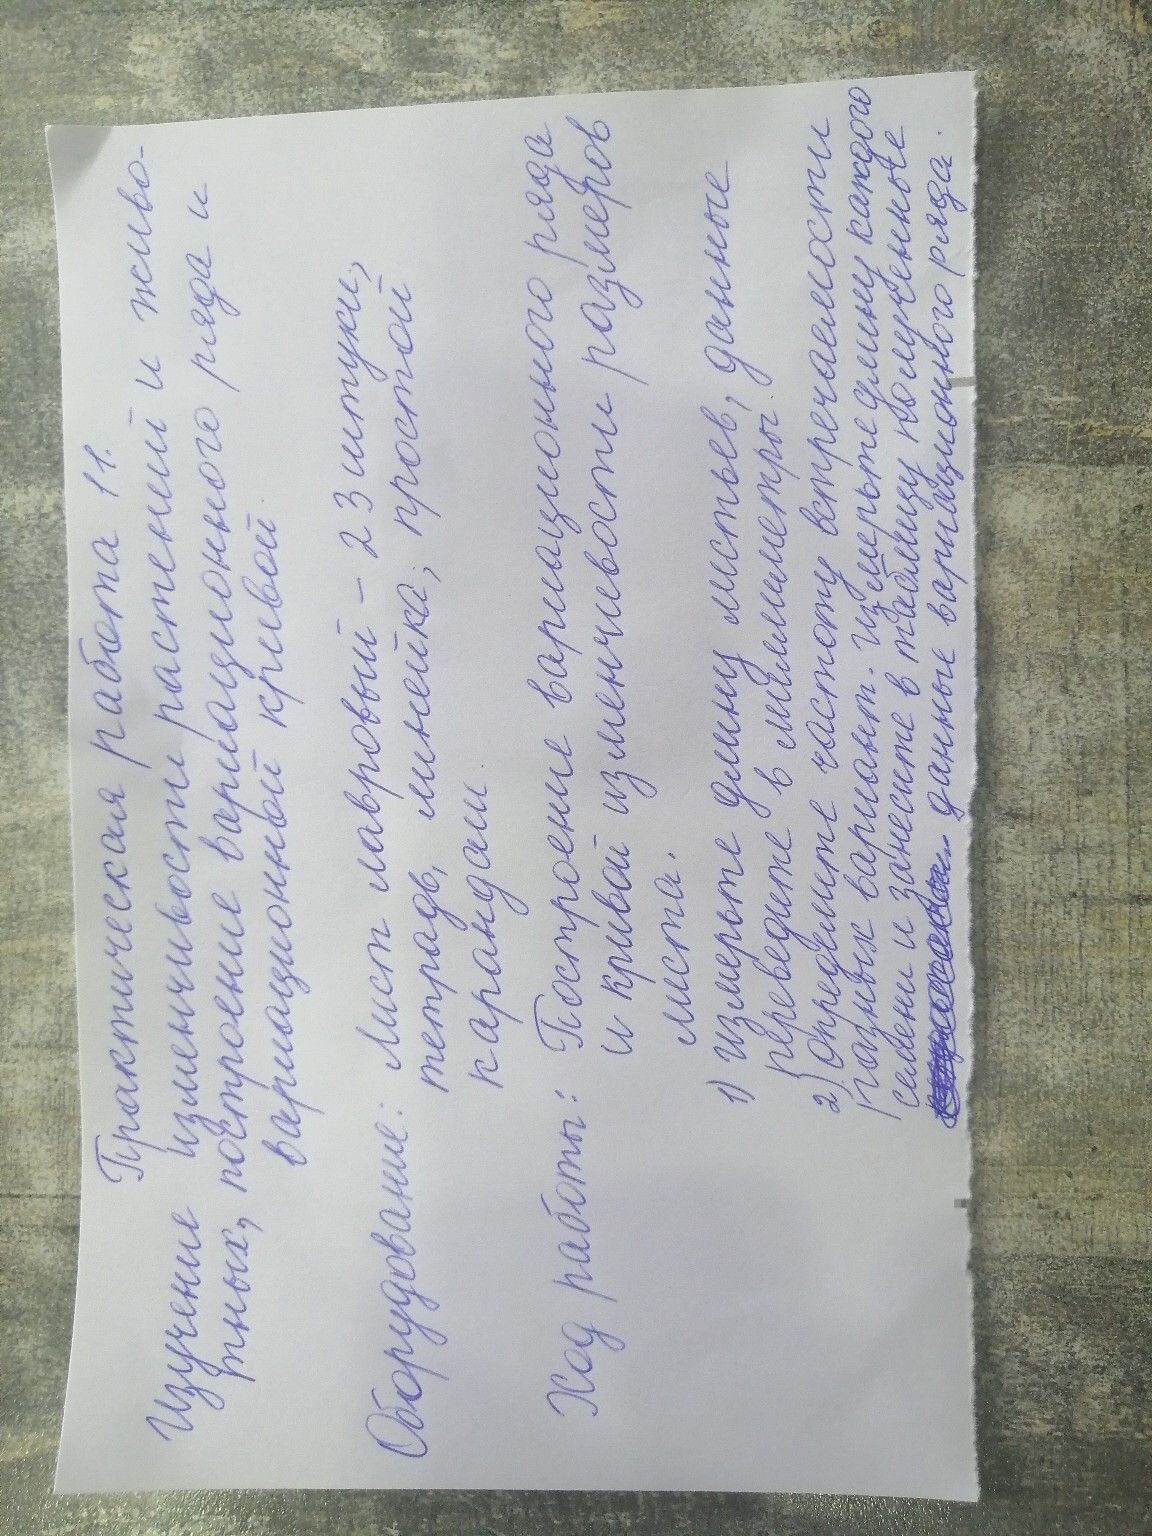 Практическая работа 11.
Изучение изменчивости растений и живо-
тных, построение вариационного ряда и
вариационной кривой
Оборудование: Лист лавровый - 23 штуки,
тетрадь, линейка, простой
карандаш.
Ход работы: Построение вариационного ряда
и кривой изменчивости размеров
листа.
1) Измерьте длину листьев, данные
переведите в миллиметры.
2) Определите частоту встречаемости
разных вариант. Измерьте длину каждого
семени и занесите в таблицу полученные
данные вариационного ряда.